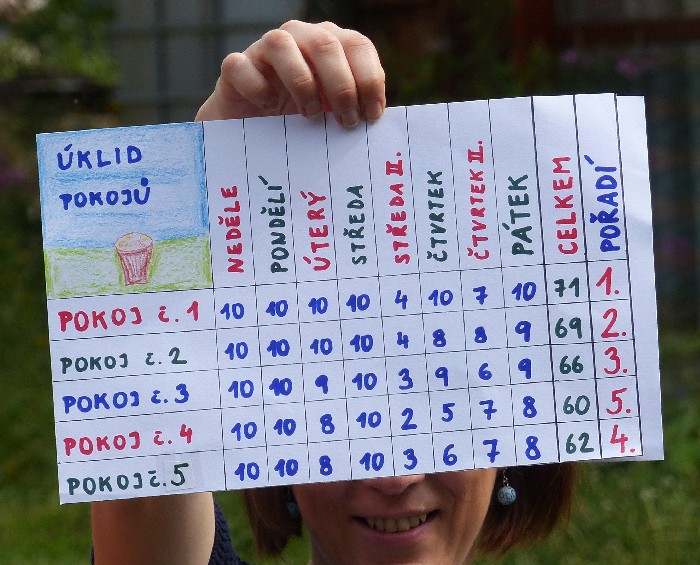 ÚKLID
POKOJŮ
NEDĚLE PONDĚLÍ ÚTERÝ STŘEDA STŘEDA II. ČTVRTEK ČTVRTEK II. PÁTEK CELKEM POŘADÍ
POKOJ č. 1 10 10 10 10 4 10 7 10 71 1.
POKOJ č. 2 10 10 10 10 4 8 8 9 69 2.
POKOJ č. 3 10 10 9 10 3 9 6 9 66 3.
POKOJ č. 4 10 10 8 10 2 5 7 8 60 5.
POKOJ č. 5 10 10 8 10 3 6 7 8 62 4.